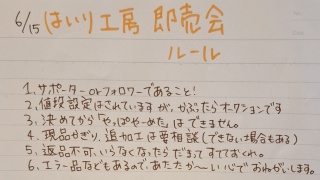 6/15 はいり工房 即売会
ルール
1、サポーターorフォロワーであること!
2、値段設定はされていますが、かぶったらオークションです
3、決めてから「やっぱやーめた」はできません。
4、現品かぎり、追加工は要相談(できない場合もある)
5、返品不可、いらなくなったらだまってすてておくれ。
6、エラー品などもあるので、あたたか〜い心でおねがいします。